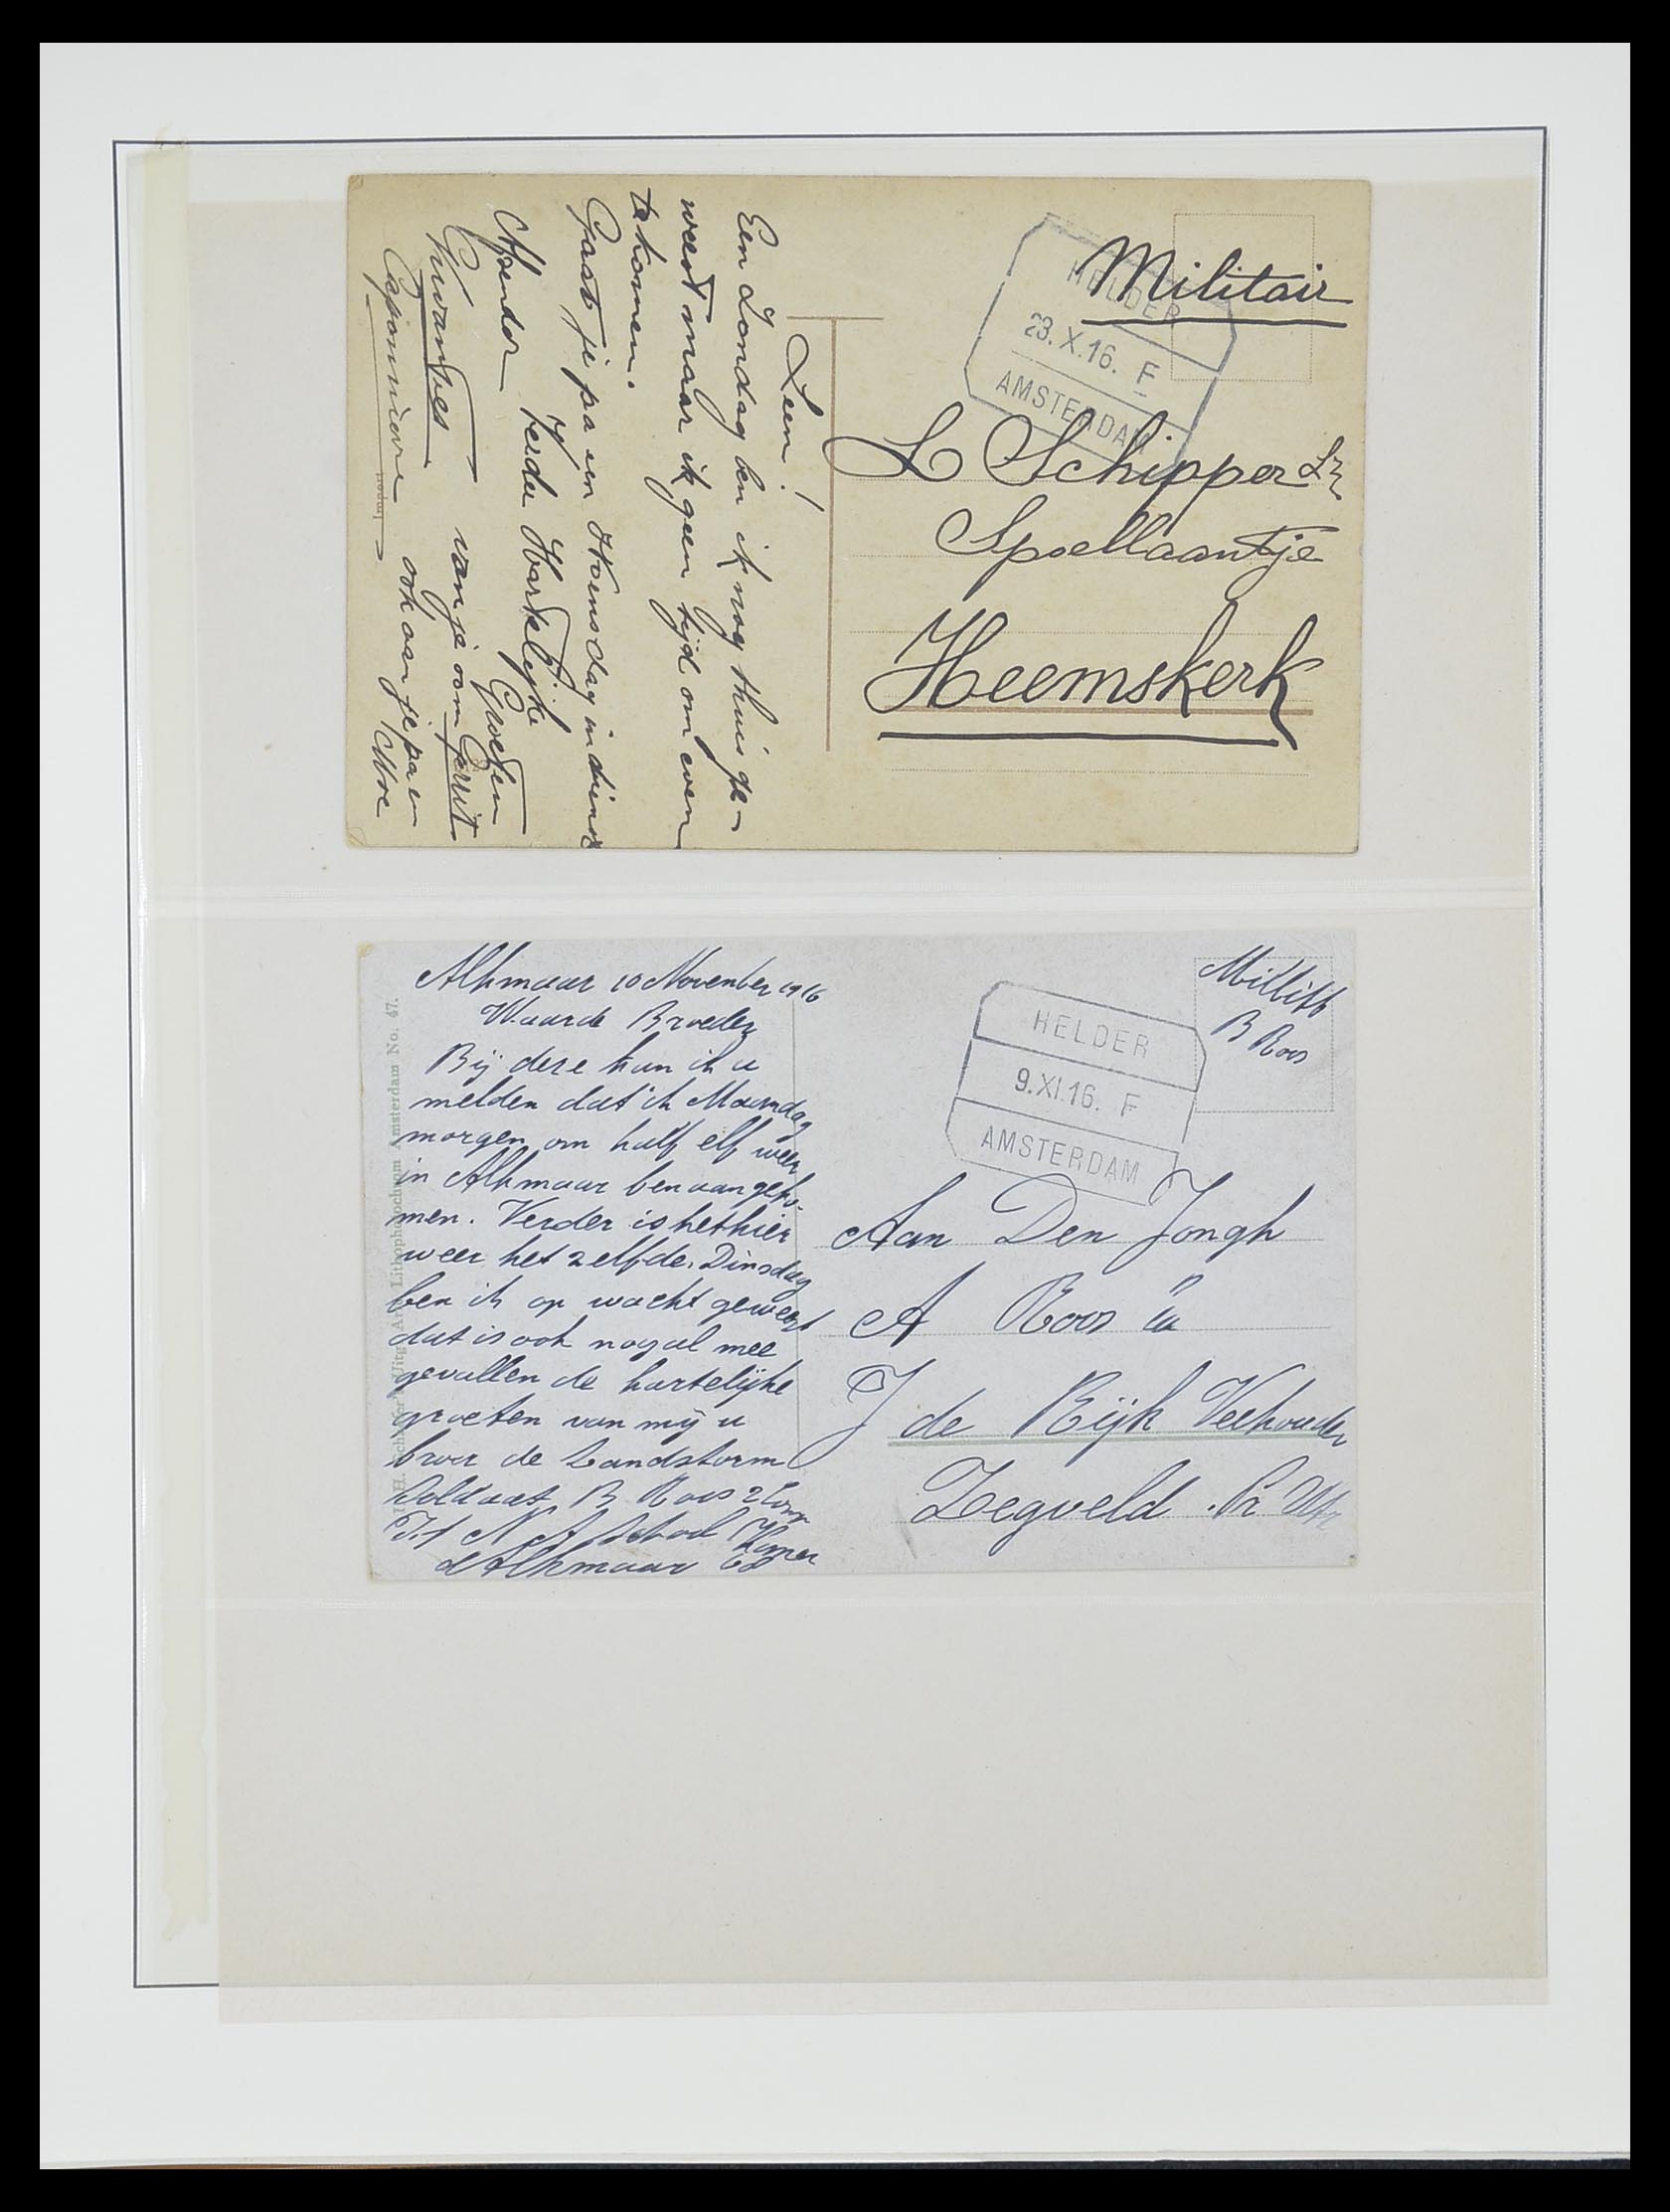 Militair
HELDER
23. X. 16. F
AMSTERDAM
L Schipper Lz
Spoellaantje
Heemskerk
Leen!
Een Zondag ben ik nog thuis ge-
weest maar ik geen tijd om even
te komen.
Gaat je pa en Woensdag in dienst
Afzender Verder Hartelijke
Groeten
G Kuvanhes van je oom Gerrit
ook aan je pa en
Moe
Alkmaar 10 November 1916
Waarde Broeder
Bij deze kan ik u
melden dat ik Maandag
morgen om half elf weer
in Alkmaar ben aangeko-
men. Verder is het hier
weer het zelfde. Dinsdag
ben ik op wacht geweest
dat is ook nogal mee
gevallen de hartelijke
groeten van mij u
broer de Landstorm
Soldaat B Roos 2 Comp
Kamer
Alkmaar
Amsterdam No. 47.
Millitt
B Roos
HELDER
9. XI. 16. F
AMSTERDAM
Aan Den Jongh
A Roos
J de Rijk Veehouder
Zegveld . Pr Utr